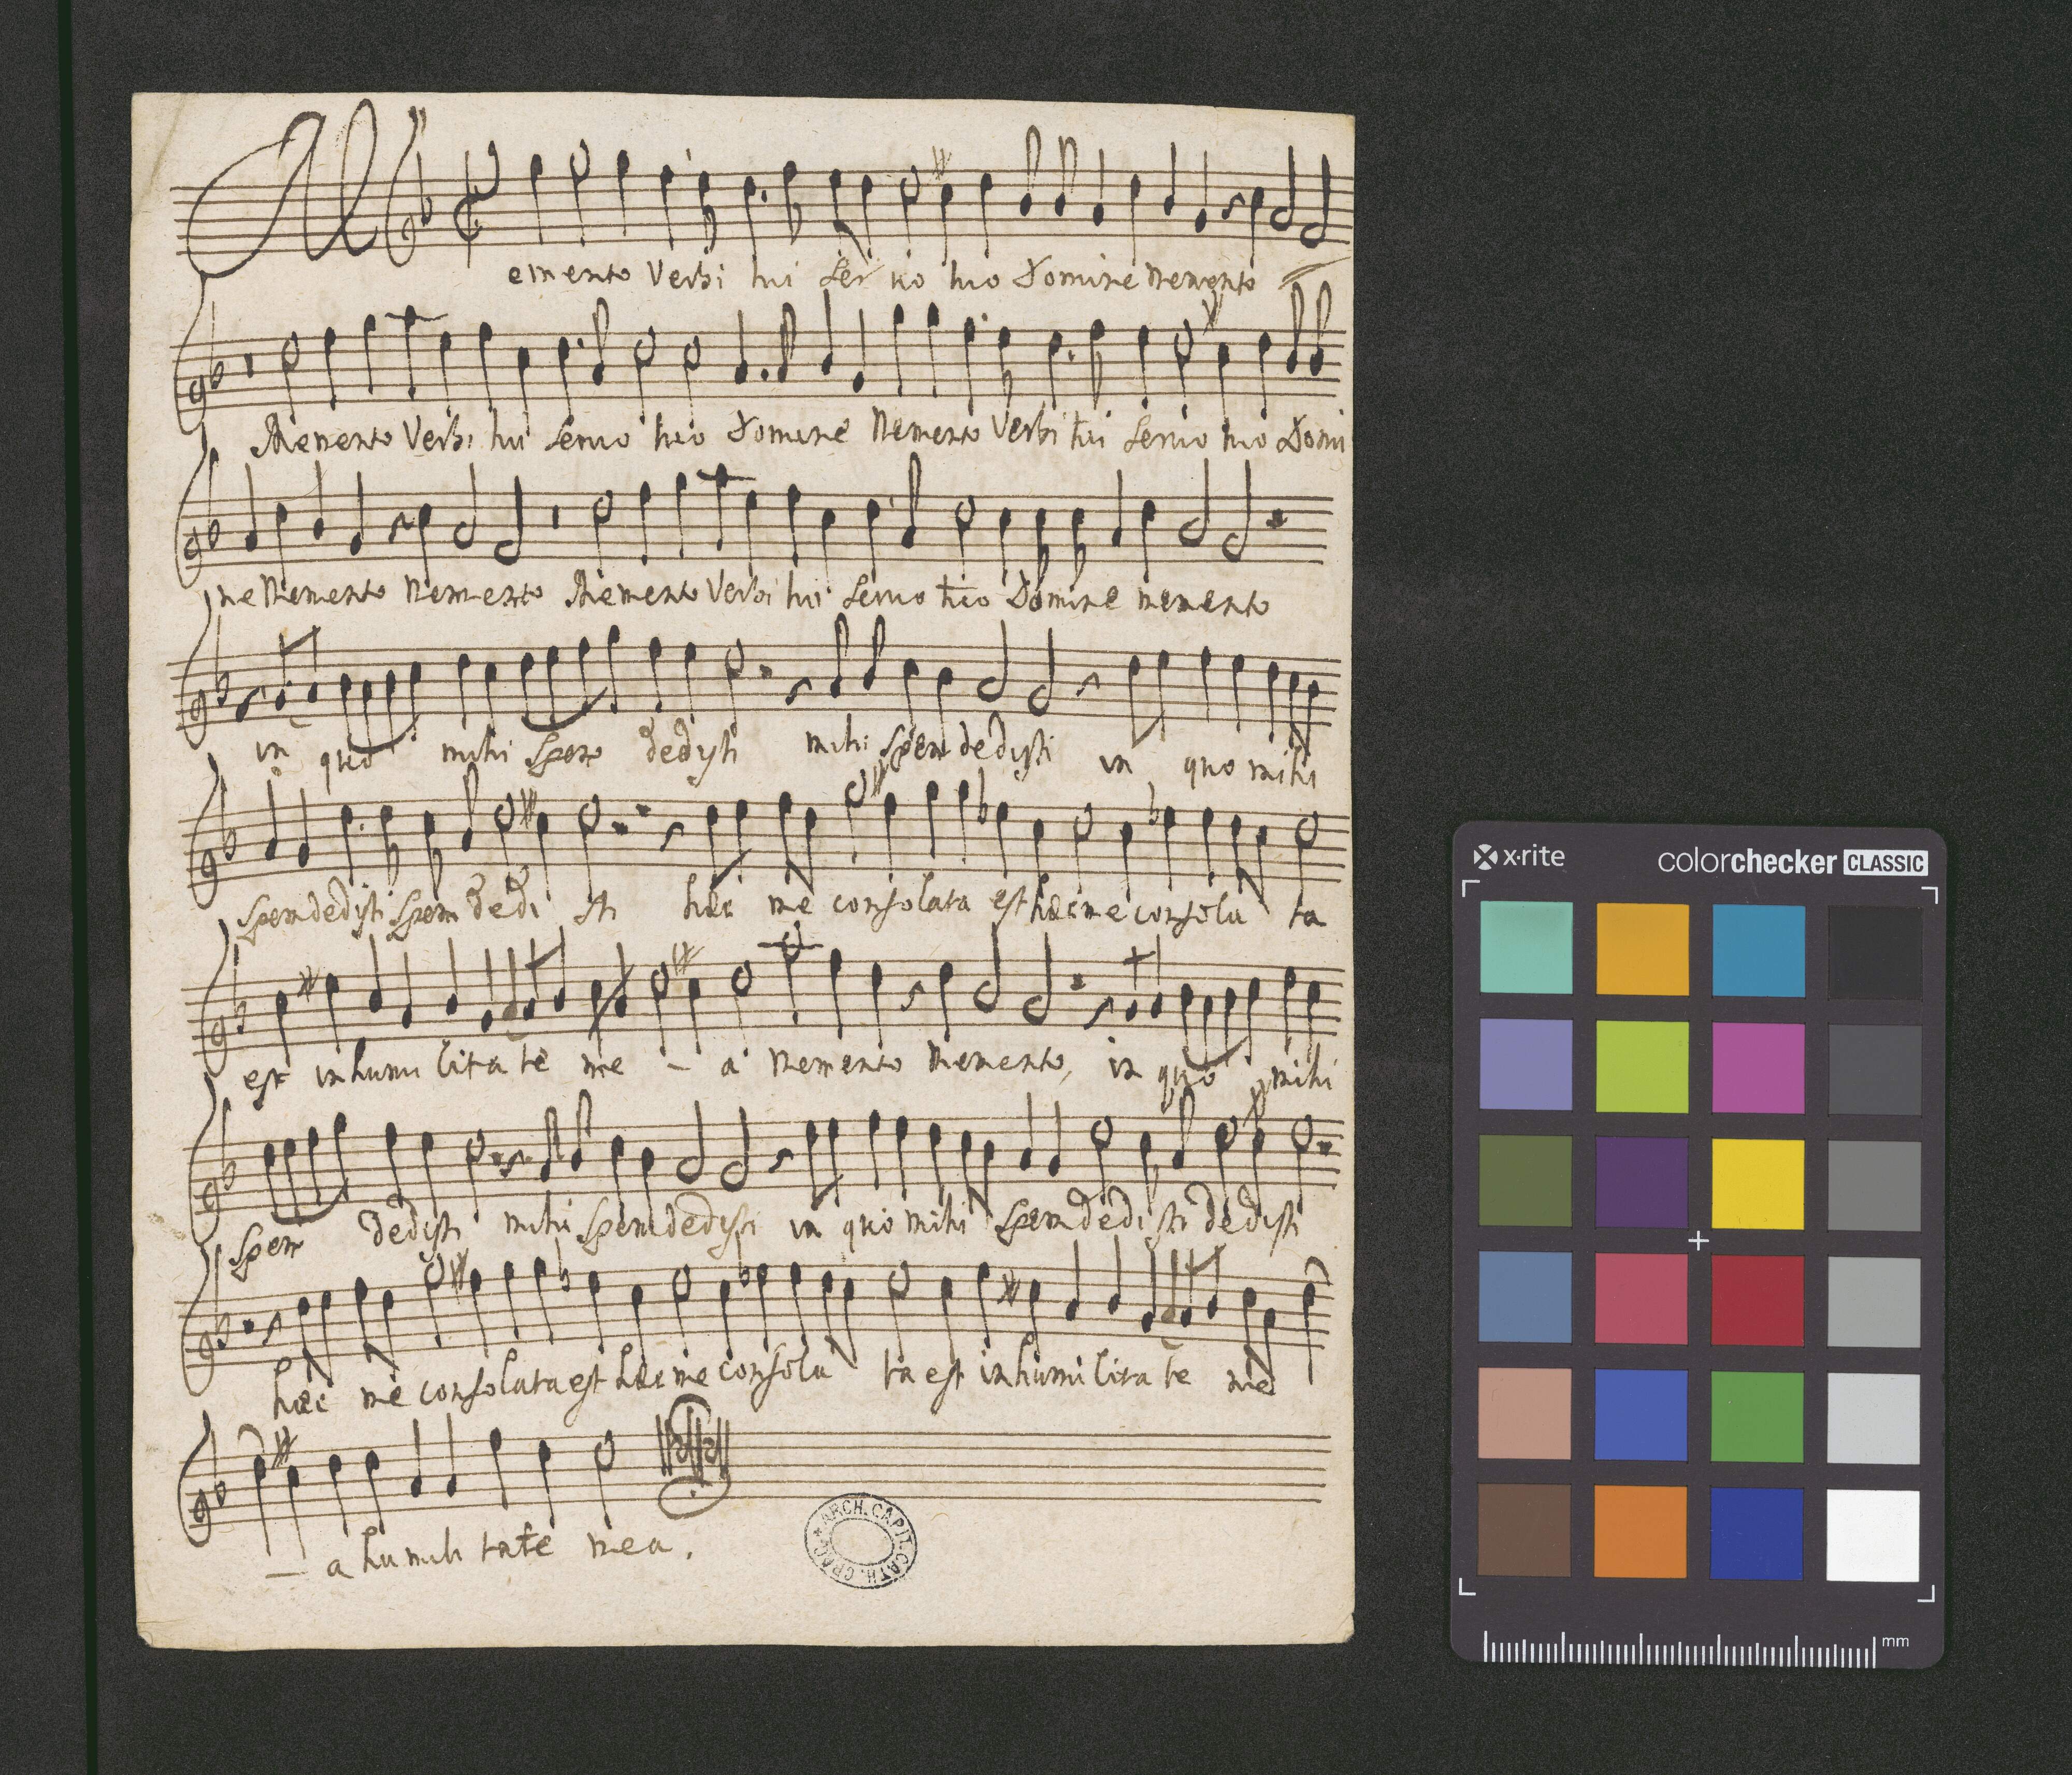 Memento Verbi tui Servo tuo Domine Memento
Memento Verbi tui Seruo tuo Domine Memento Verbi tui Seruo tuo Domi
ne Memento Memento Memento Verbi tui Seruo tuo Domine memento
in quo mihi Spem dedisti mihi Spem dedisti in quo mihi
Spem dedisti Spem dedi sti hæc me consolata est hæc me consola ta
est in humi lita te me – a Memento Memento, in quo mihi
Spem dedisti mihi Spem dedisti in quo mihi Spem dedi sti dedisti
hæc me consolata est hæc me consola ta est in humi lita te me
– a humili tate mea.
ARCH. CAPIT. CATH. CRAC.
x·rite colorchecker CLASSIC
mm